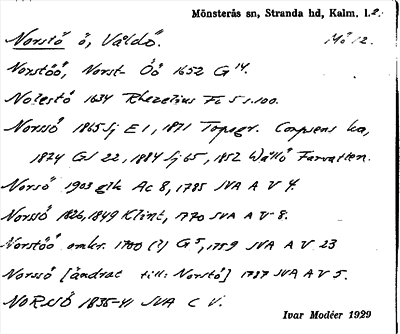 Mönsterås sn, Stranda hd, Kalm. l.
Norstö ö, Våldö. Mö 12.
Norstöö, Norst- Öö 1652 G 14.
Nolestö 1634 Rhezelius Fc 5 s. 100.
Norssö 1865 Sj E 1, 1871 Topogr. Corpsens ka,
1874 GS 22, 1884 Sj 65, 1852 Wållö Farvatten.
Norsö 1903 glk Ac 8, 1785 SVA A V 4.
Norssö 1826, 1849 Klint, 1770 SVA A V 8.
Norstöö omkr. 1700 (?) G 5, 1759 SVA A V 23
Norssö [ändrat till: Norstö] 1787 SVA A V 5.
NORSSÖ 1835-41 SVA C V.
Ivar Modéer 1929